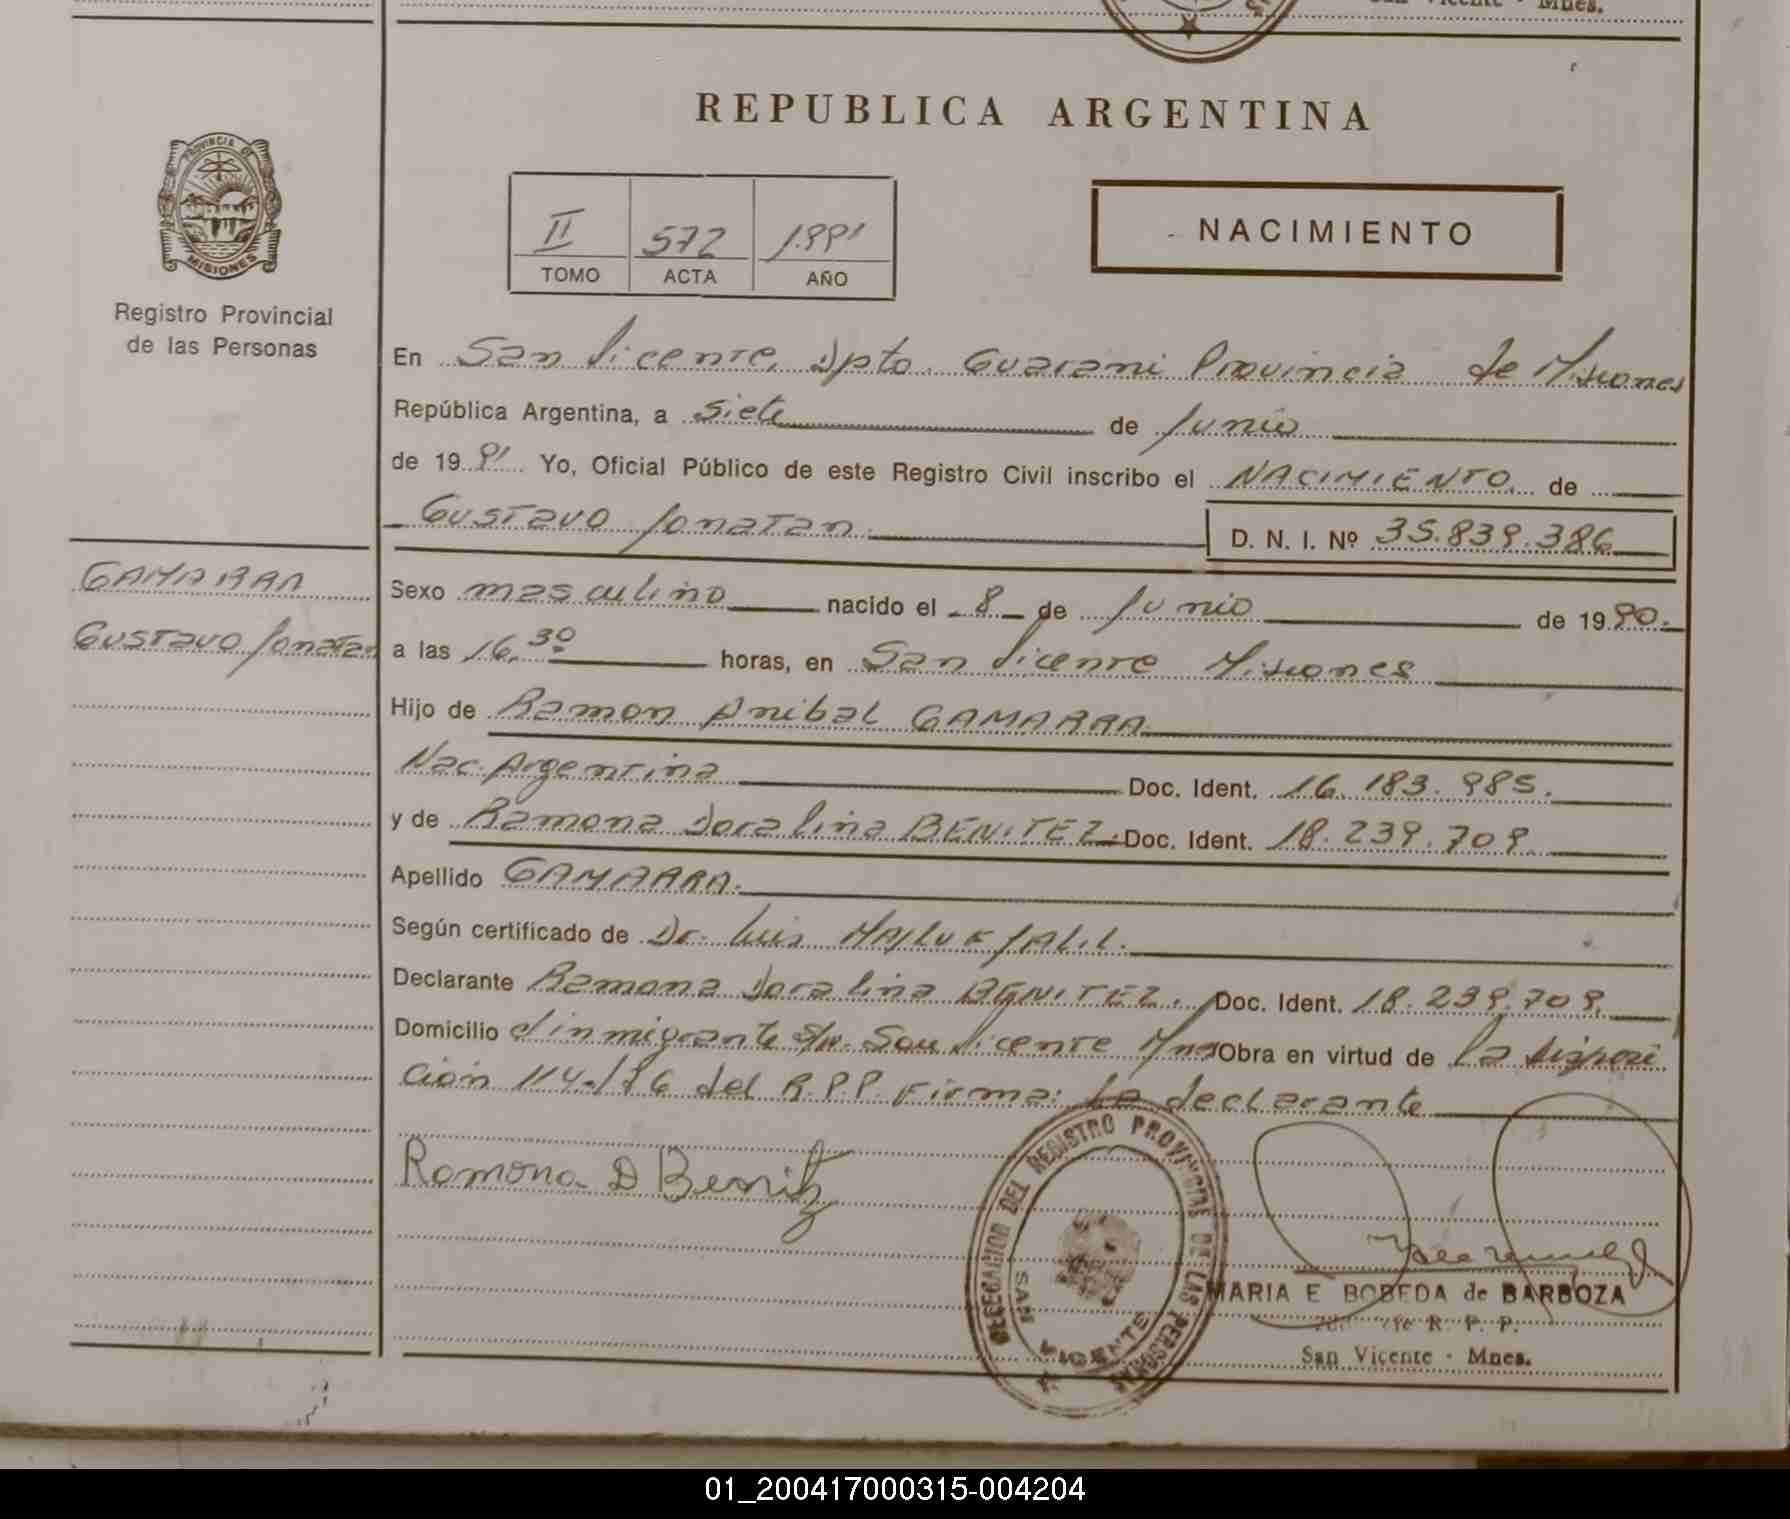 San Vicente - Mnes.
REPUBLICA ARGENTINA
PROVINCIA DE
MISIONES
Registro Provincial
de las Personas
II 572 1991
TOMO ACTA AÑO
NACIMIENTO
En San Vicente, Dpto. Guarani Provincia de Misiones
República Argentina, a Siete de Junio
de 1991 Yo, Oficial Público de este Registro Civil inscribo el NACIMIENTO de
Gustavo Jonatan D. N. I. Nº 35.839.386
GAMARRA
Gustavo Jonatan
Sexo masculino nacido el 8 de Junio de 1990.
a las 16,30 horas, en San Vicente Misiones
Hijo de Ramon Anibal GAMARRA
Nac. Argentina Doc. Ident. 16.183.985.
y de Ramona Doralina BENITEZ. Doc. Ident. 18.239.709.
Apellido GAMARRA.
Según certificado de Dr. Luis
Declarante Ramona Doralina BENITEZ. Doc. Ident. 18.239.709.
Domicilio inmigrante S/N. San Vicente Mnes Obra en virtud de la disposi
ción 114/86 del R.P.P. Firma: La declarante
Ramona D Benitez
DELEGACION DEL REGISTRO PROVINCIAL DE LAS PERSONAS
SAN VICENTE
MARIA E BOBEDA de BARBOZA
R. P. P.
San Vicente - Mnes.
01_200417000315-004204